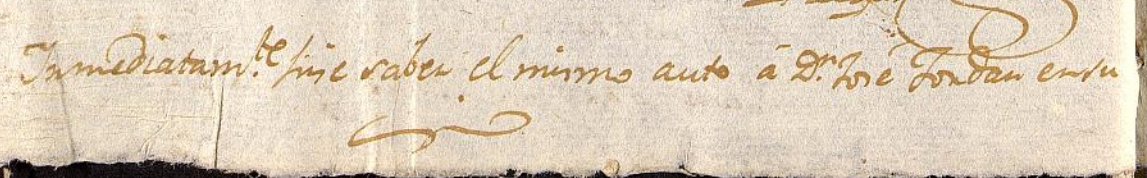 Inmediatam.te hise saber el mismo auto á Dn. José Jordan en su